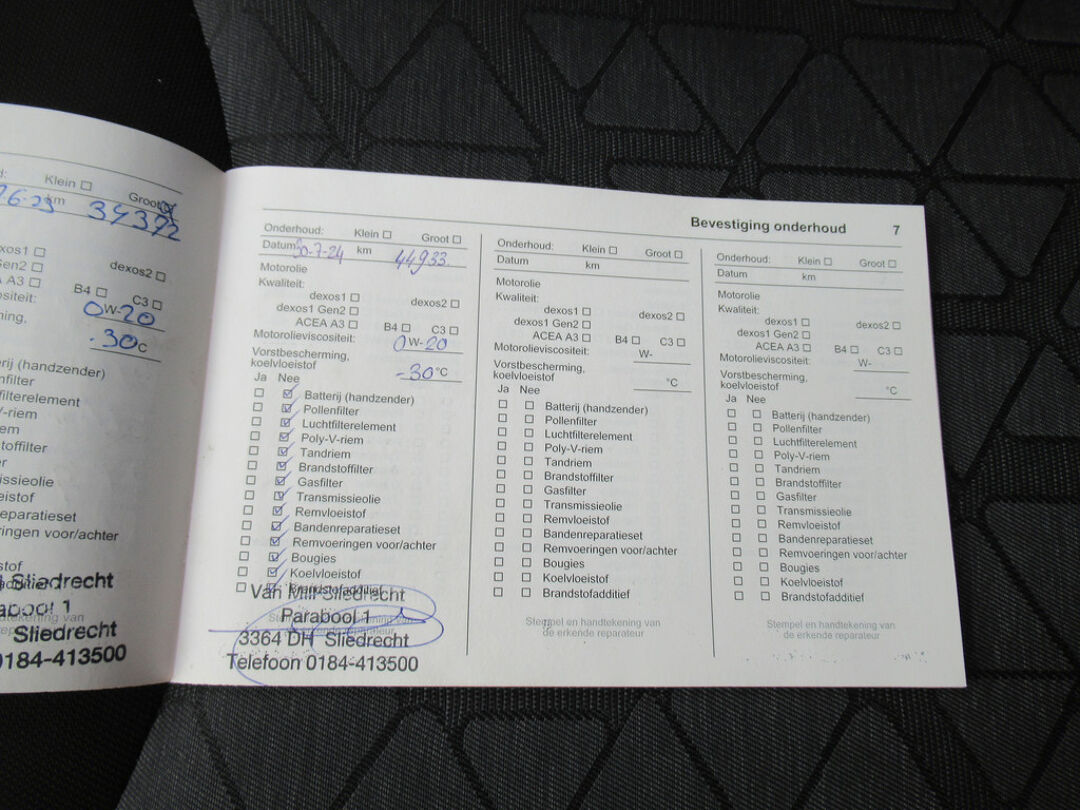 Klein ☐
Groot ☒
6-23 km 34372
dexos2 ☐
Gen2 ☐
A3 ☐
B4 ☐ C3 ☐
0W-20
-30°C
(handzender)
V-riem
Sliedrecht
Sliedrecht
0184-413500
Bevestiging onderhoud 7
Onderhoud: Klein ☐ Groot ☐
Datum 30-7-24 km 44933
Motorolie
Kwaliteit:
dexos1 ☐ dexos2 ☐
dexos1 Gen2 ☐
ACEA A3 ☐ B4 ☐ C3 ☐
Motorolieviscositeit: 0W-20
Vorstbescherming,
koelvloeistof -30°C
Ja Nee
☐ ☑ Batterij (handzender)
☐ ☑ Pollenfilter
☐ ☑ Luchtfilterelement
☐ ☑ Poly-V-riem
☐ ☑ Tandriem
☐ ☑ Brandstoffilter
☐ ☑ Gasfilter
☐ ☑ Transmissieolie
☐ ☑ Remvloeistof
☐ ☑ Bandenreparatieset
☐ ☑ Remvoeringen voor/achter
☐ ☑ Bougies
☐ ☑ Koelvloeistof
☐ ☑ Brandstofadditief
Van Mill Sliedrecht
Parabool 1
3364 DH Sliedrecht
Telefoon 0184-413500
Onderhoud: Klein ☐ Groot ☐
Datum km
Motorolie
Kwaliteit:
dexos1 ☐ dexos2 ☐
dexos1 Gen2 ☐
ACEA A3 ☐ B4 ☐ C3 ☐
Motorolieviscositeit: W-
Vorstbescherming,
koelvloeistof °C
Ja Nee
☐ ☐ Batterij (handzender)
☐ ☐ Pollenfilter
☐ ☐ Luchtfilterelement
☐ ☐ Poly-V-riem
☐ ☐ Tandriem
☐ ☐ Brandstoffilter
☐ ☐ Gasfilter
☐ ☐ Transmissieolie
☐ ☐ Remvloeistof
☐ ☐ Bandenreparatieset
☐ ☐ Remvoeringen voor/achter
☐ ☐ Bougies
☐ ☐ Koelvloeistof
☐ ☐ Brandstofadditief
Stempel en handtekening van
de erkende reparateur
Onderhoud: Klein ☐ Groot ☐
Datum km
Motorolie
Kwaliteit:
dexos1 ☐ dexos2 ☐
dexos1 Gen2 ☐
ACEA A3 ☐ B4 ☐ C3 ☐
Motorolieviscositeit: W-
Vorstbescherming,
koelvloeistof °C
Ja Nee
☐ ☐ Batterij (handzender)
☐ ☐ Pollenfilter
☐ ☐ Luchtfilterelement
☐ ☐ Poly-V-riem
☐ ☐ Tandriem
☐ ☐ Brandstoffilter
☐ ☐ Gasfilter
☐ ☐ Transmissieolie
☐ ☐ Remvloeistof
☐ ☐ Bandenreparatieset
☐ ☐ Remvoeringen voor/achter
☐ ☐ Bougies
☐ ☐ Koelvloeistof
☐ ☐ Brandstofadditief
Stempel en handtekening van
de erkende reparateur